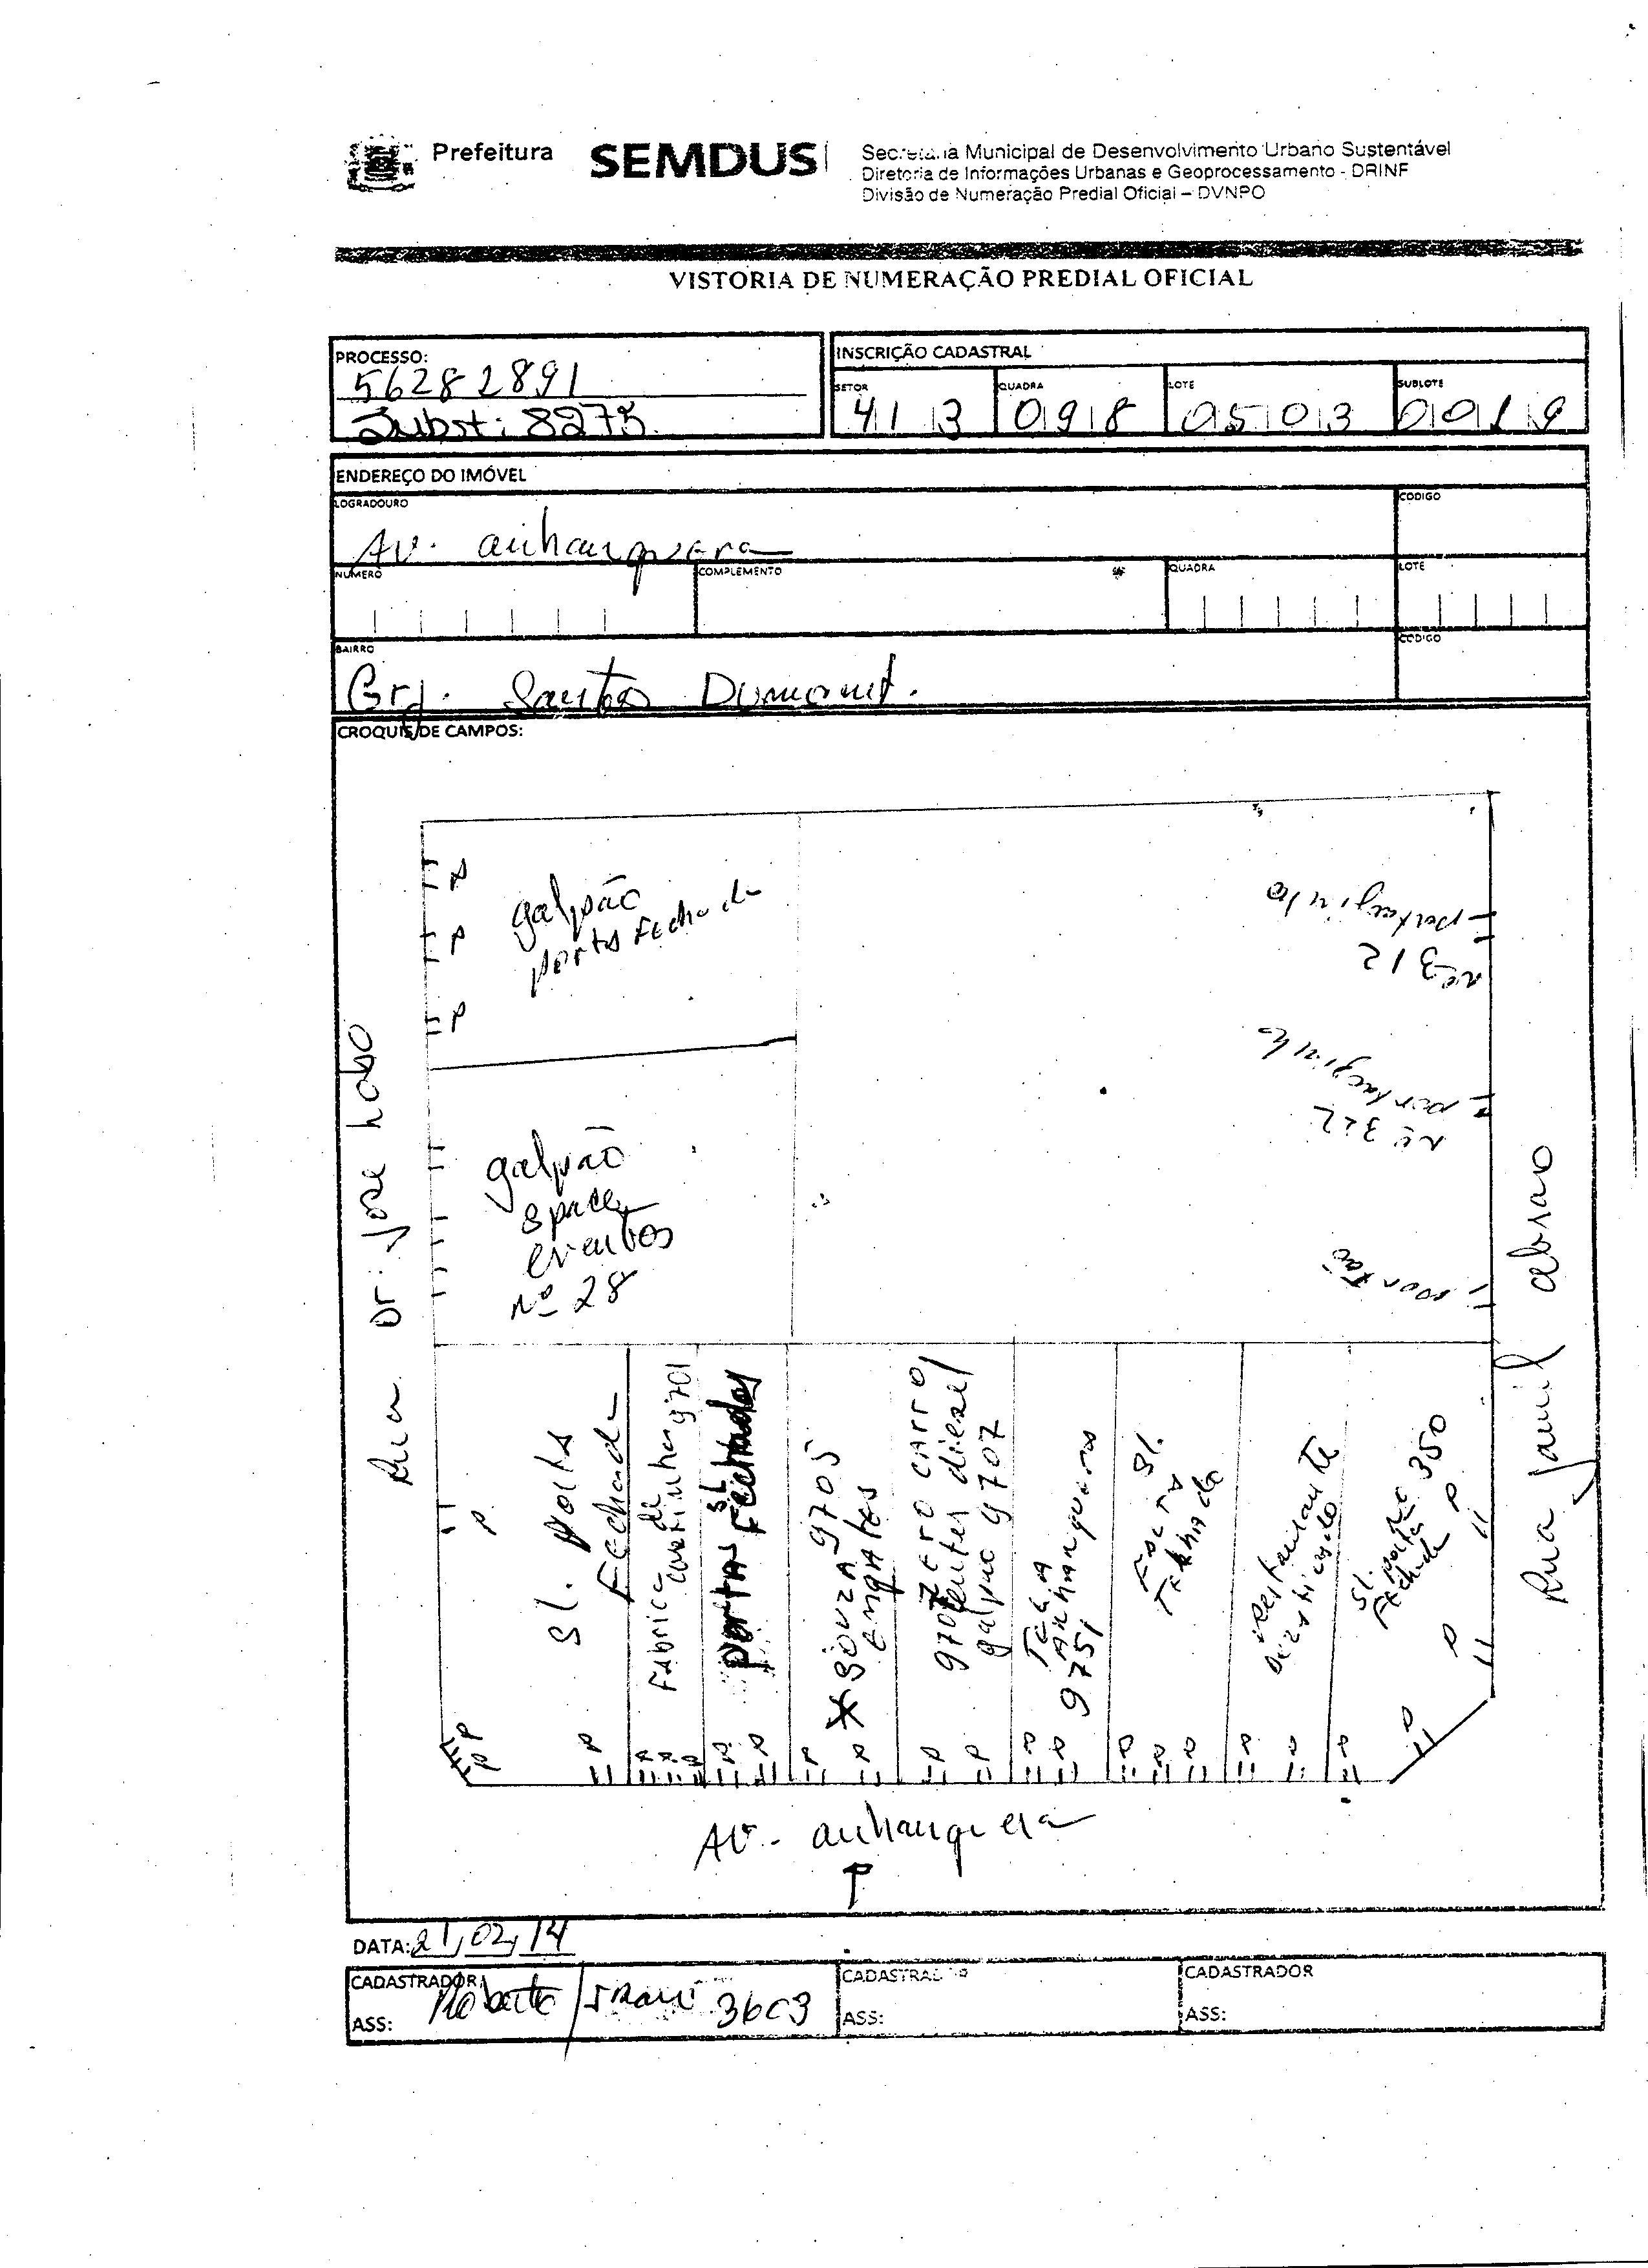 Prefeitura
SEMDUS
Secretaria Municipal de Desenvolvimento Urbano Sustentável
Diretoria de Informações Urbanas e Geoprocessamento - DRINF
Divisão de Numeração Predial Oficial – DVNPO
VISTORIA DE NUMERAÇÃO PREDIAL OFICIAL
PROCESSO:
56282891
Subst: 8275
INSCRIÇÃO CADASTRAL
SETOR
QUADRA
LOTE
SUBLOTE
41 3
098
0503
0019
ENDEREÇO DO IMÓVEL
LOGRADOURO
CODIGO
Av. anhanguera
NUMERO
COMPLEMENTO
QUADRA
LOTE
BAIRRO
CODIGO
Grj. Santos Dumont.
CROQUIS DE CAMPOS:
P
galpão
porta Fechada
P
P
portaozinho
nº 312
portaozinho
nº 322
portão
galpão
space
eventos
Nº 28
Rua Dr: Jose
Rua Jamil abrao
Sl. Porta
Fechada
P
Fabrica de
9701
Sl
portas Fechadas
* Souza 9705
engates
zero carro
diesel
galpão 9707
Anhanguera
9751
Sl.
Porta
Fechada
Restaurante
Sl. porta nº 350
Fechada
P
P
P P P P P P P P P P P P P P P P P P P P
Av. anhanguera
P
DATA: 21/02/14
CADASTRADOR
Roberto / 3603
ASS:
CADASTRADOR
ASS:
CADASTRADOR
ASS: